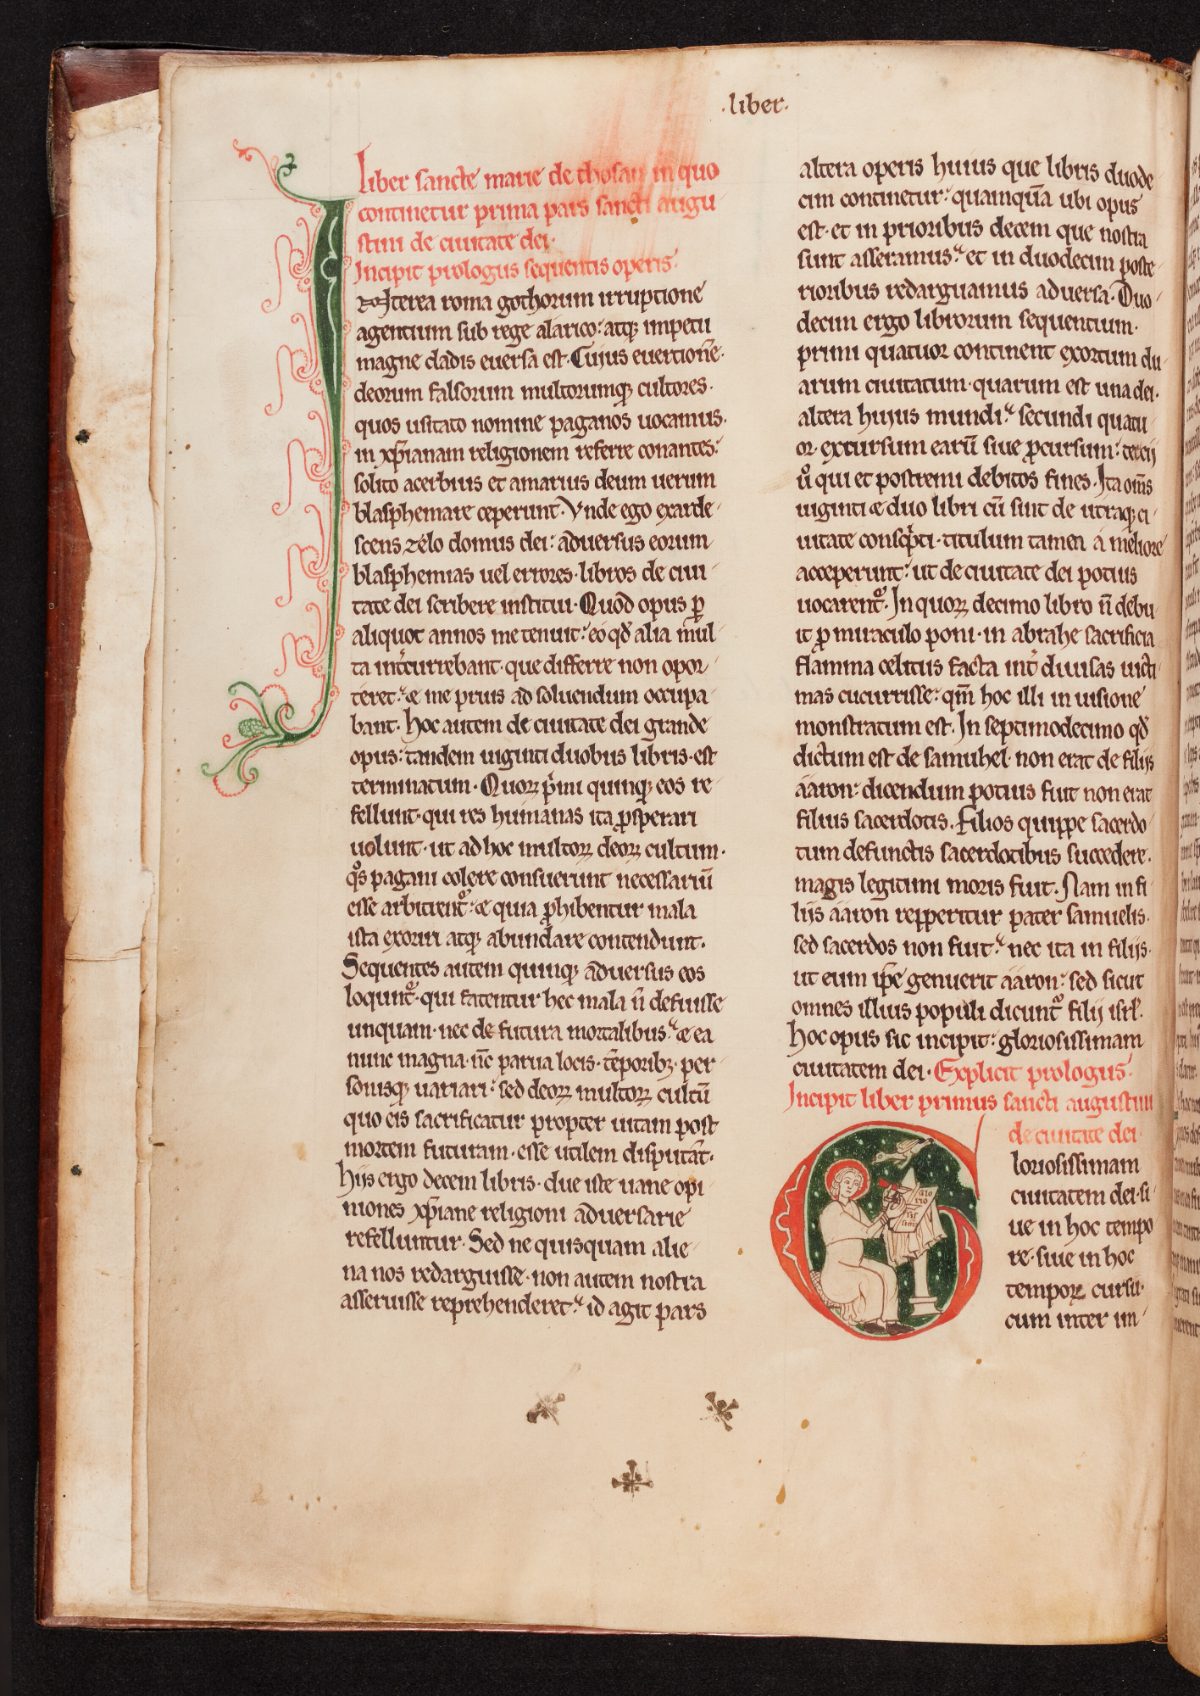 .liber.
Liber sancte marie de thosan in quo
continetur prima pars sancti augu
stini de ciuitate dei.
Incipit prologus sequentis operis.
INterea roma gothorum irruptione
agentium sub rege alarico: atq; impetu
magne cladis euersa est. Cuius euersione.
deorum falsorum multorumq; cultores.
quos usitato nomine paganos uocamus.
in xp̄ianam religionem referre conantes:
solito acerbius et amarius deum uerum
blasphemare ceperunt. Vnde ego exarde-
scens zelo domus dei: aduersus eorum
blasphemias uel errores. libros de ciui-
tate dei scribere institui. Quod opus ꝑ
aliquot annos me tenuit: eo qđ alia mul-
ta int̾currebant. que differre non opor-
teret: & me prius ad soluendum occupa-
bant. Hoc autem de ciuitate dei grande
opus: tandem uiginti duobus libris. est
terminatum. Quoꝝ p̄mi quinq; eos re-
fellunt. qui res humanas ita ꝓsperari
uolunt. ut ad hoc multoꝝ deoꝝ cultum.
q̊s pagani colere consuerunt necessariū
esse arbitrent᷑: & quia ꝓhibentur mala
ista exoriri atq; abundare contendunt.
Sequentes autem quinq; aduersus eos
loqunt᷑. qui fatentur hec mala ñ defuisse
unquam. nec defutura mortalibus: & ea
nunc magna. nc̄ parua locis. tēporibꝫ. per-
sonisq; uariari: sed deoꝝ multoꝝ cultū
quo eis sacrificatur propter uitam post
mortem futuram. esse utilem disputāt.
hijs ergo decem libris. due iste uane opi-
niones xp̄iane religioni aduersarie
refelluntur. Sed ne quisquam alie-
na nos redarguisse. non autem nostra
asseruisse reprehenderet: id agit pars
altera operis huius que libris duode-
cim continetur: quamquā ubi opus
est. et in prioribus decem que nostra
sunt asseramus: et in duodecim poste-
rioribus redarguamus aduersa. Duo-
decim ergo librorum sequentium.
primi quatuor continent exortum du-
arum ciuitatum. quarum est una dei.
altera huius mundi: secundi quatu-
or. excursum earū siue ꝓcursum: tercij
ū qui et postremi debitos fines. Ita om̄s
uiginti & duo libri cū sint de utraq; ci-
uitate consc̾pti. titulum tamen a meliore
acceperunt: ut de ciuitate dei potius
uocarent᷑. In quoꝝ decimo libro ñ debu-
it ꝓ miraculo poni. in abrahe sacrificia
flamma celitus facta int̾ diuisas uicti-
mas cucurrisse: qm̄ hoc illi in uisione
monstratum est. In septimodecimo qđ
dictum est de samuhel. non erat de filijs
aaron: dicendum potius fuit non erat
filius sacerdotis. Filios quippe sacerdo-
tum defunctis sacerdotibus succedere.
magis legitimi moris fuit. Nam in fi-
liis aaron repperitur pater samuelis.
sed sacerdos non fuit: nec ita in filijs.
ut eum ip̄e genuerit aaron: sed sicut
omnes illius populi dicunt᷑ filij isrł.
Hoc opus sic incipit: gloriosissimam
ciuitatem dei. Explicit prologus.
Incipit liber primus sancti augustini
de ciuitate dei.
Gloriosissimam
ciuitatem dei. si-
ue in hoc tempo
re. siue in hoc
tempoꝝ cursu.
cum inter im-